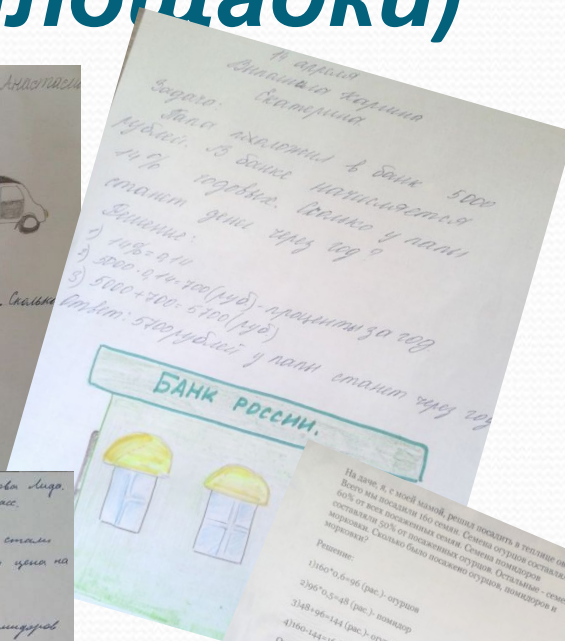 площадки)
Анастасия
14 апреля
Екатерина.
Задача:
Папа положил в банк 5000
рублей. В банке начисляется
14% годовых. Сколько у папы
станет денег через год?
Решение:
1) 14%=0,14
2) 5000·0,14=700(руб)-проценты за год.
3) 5000+700=5700(руб)
Ответ: 5700рублей у папы станет через год
Сколько
БАНК РОССИИ.
Лида.
стали
цена на
помидоров
На даче, я, с моей мамой, решил посадить в теплице
Всего мы посадили 160 семян. Семена огурцов
60% от всех посаженных семян. Семена помидоров
составляли 50% от посаженных огурцов. Остальные -
морковки. Сколько было посажено огурцов, помидоров и
морковки?
Решение:
1)160*0,6=96 (рас.)- огурцов
2)96*0,5=48 (рас)- помидор
3)48+96=144 (рас.)-
4)160-144=